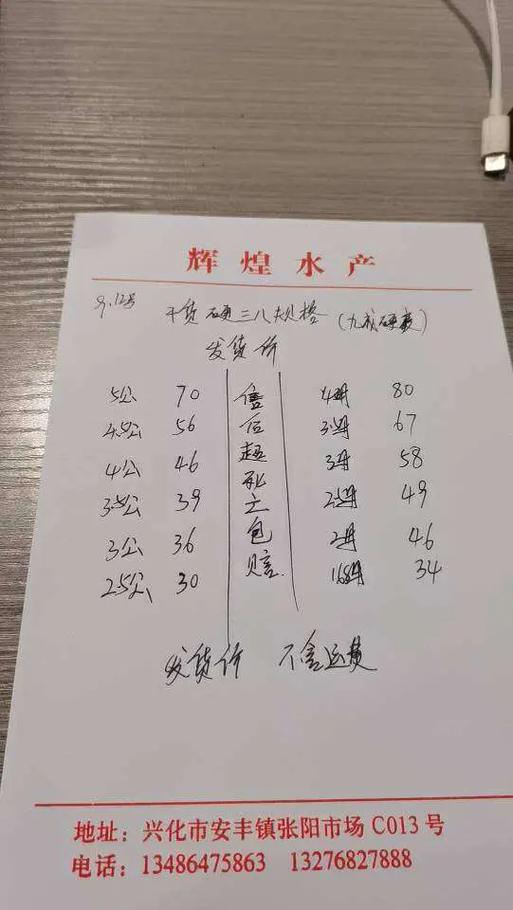 辉煌水产
9.12号 干货硬三八规格(九成硬度)
发货价
5公 70 售 4母 80
4.5公 56 后 3.5母 67
4公 46 超 3母 58
3.5公 39 死亡 2.5母 49
3公 36 包 2母 46
2.5公 30 赔 1.68母 34
发货价 不含运费
地址:兴化市安丰镇张阳市场 C013 号
电话:13486475863 13276827888